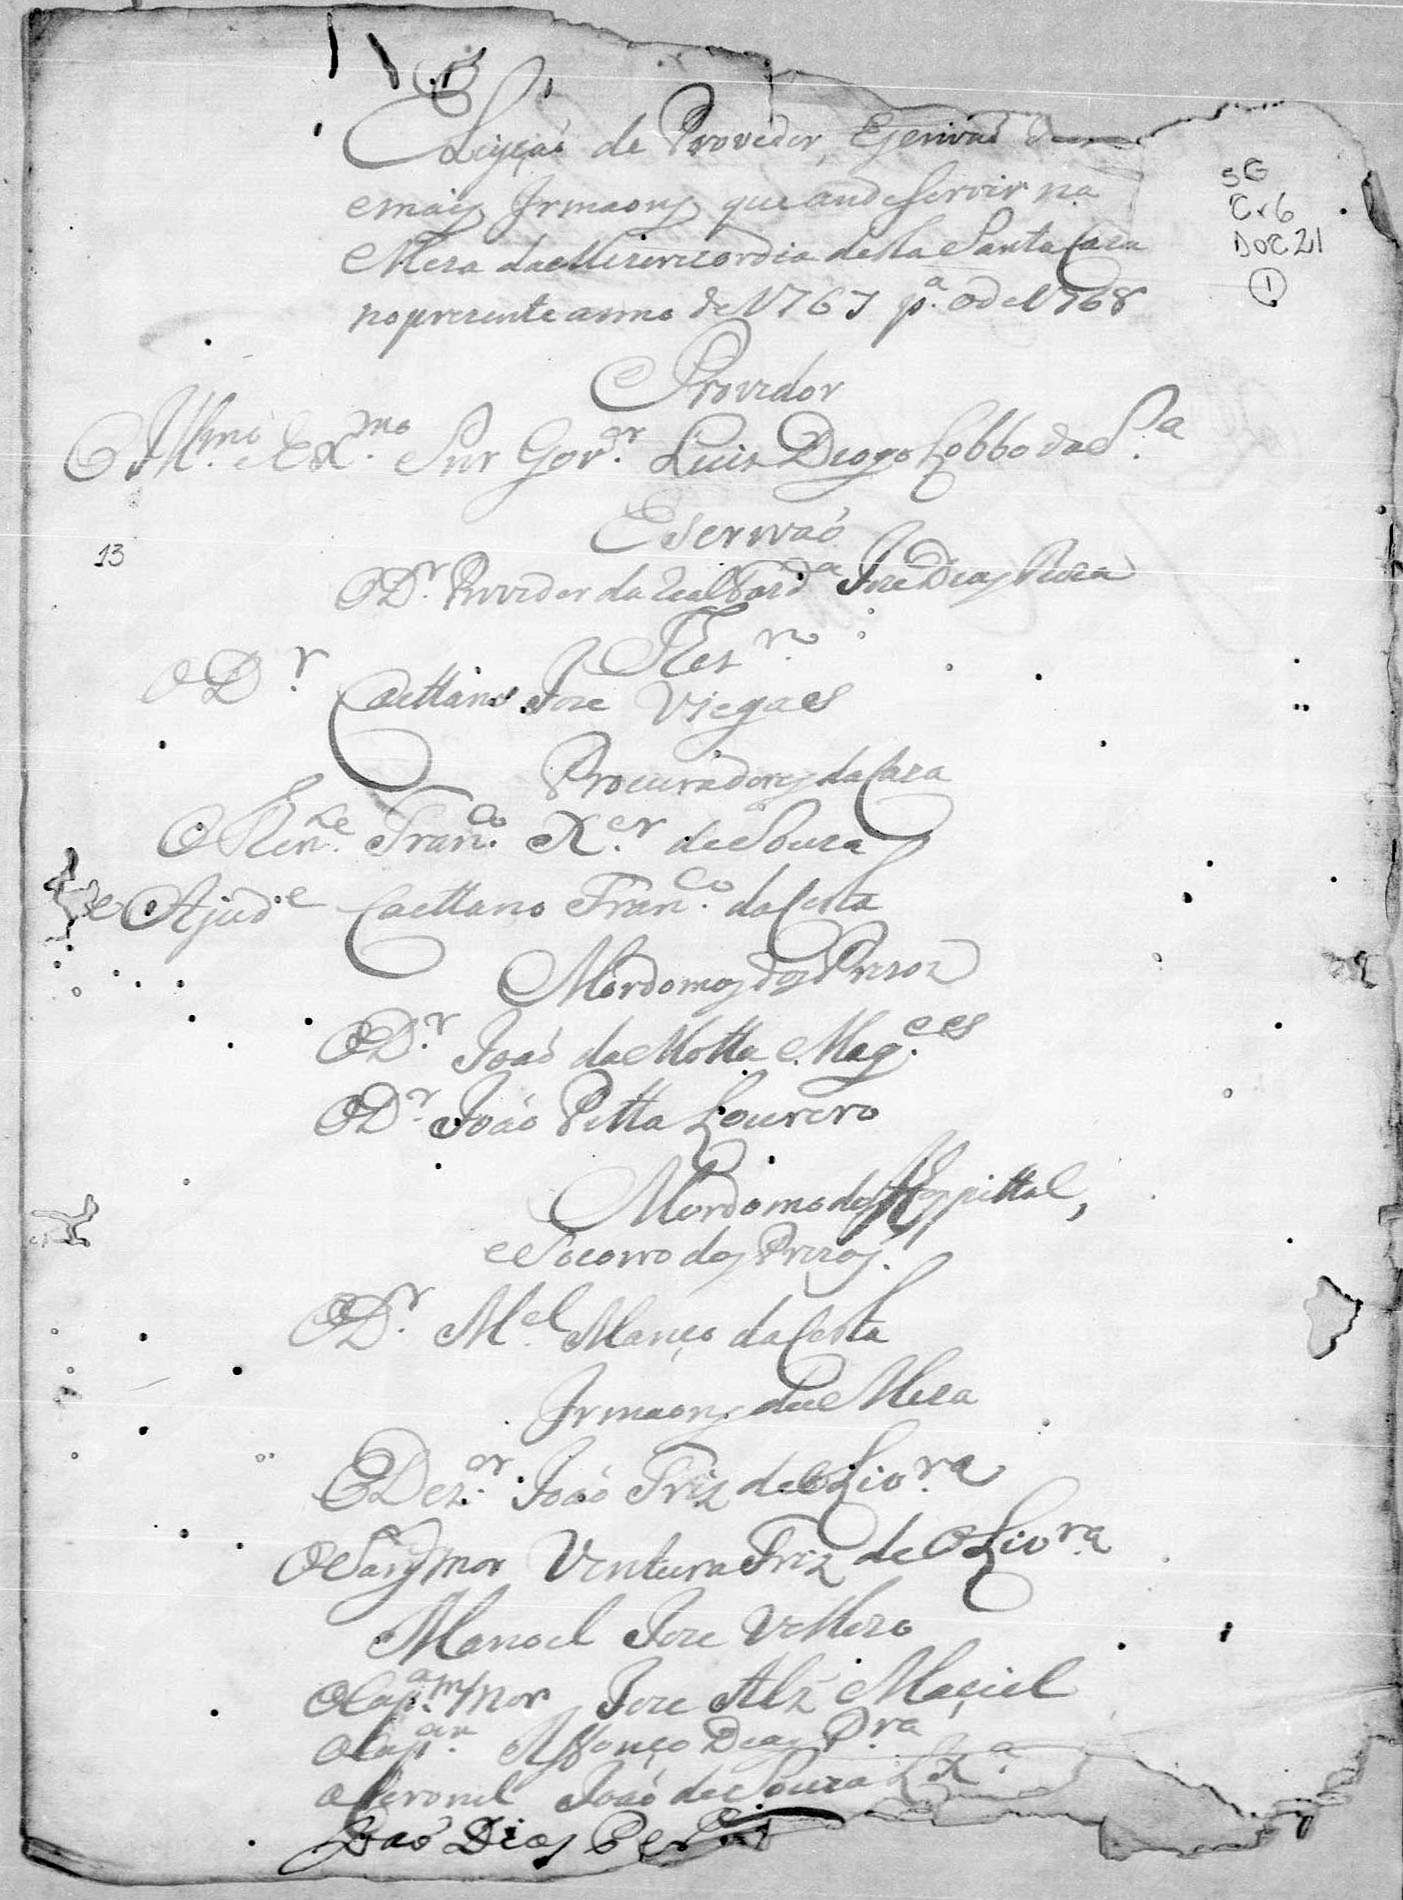 Eleyçaó de Provedor, Escrivaó
emais Irmaons que andeServir na
Mera daMizericordia desta Santa Caza
nopresente anno de 1767 p.ª o de 1768
SG
Cx6
DOC 21
1
Provedor
O Ill.mo e Ex.mo Snr Gov.or Luis Diogo Lobbo da S.ª
Escrivaó
13
O D.r Provedor da Real Fazd.ª Joze Dias Roza
Thez.ro
O D.r Caettano Joze Viegaes
Procuradores da Caza
O Then.te Fran.co X.er de Souza
e O Ajud.e Caettano Fran.co da Costa
Mordomos dos Prezos
O D.r Joaó da Motta Mag.es
O D.r Joáo Pitta Loureiro
Mordomo do Hospittal,
e Socorro dos Prezos.
O D.r M.el Manço da Costa
Irmaons da Meza
O Dez.or Joáo Friz de Oliv.ra
O Sargmor Ventura Friz de Oliv.ra
Manoel Joze Velllozo
O Cap.am mor Joze Alz Maçiel
o Cap.an Affonço Dias P.ra
o Coronel Joaó de Souza Lx.ª
Joaó Dias